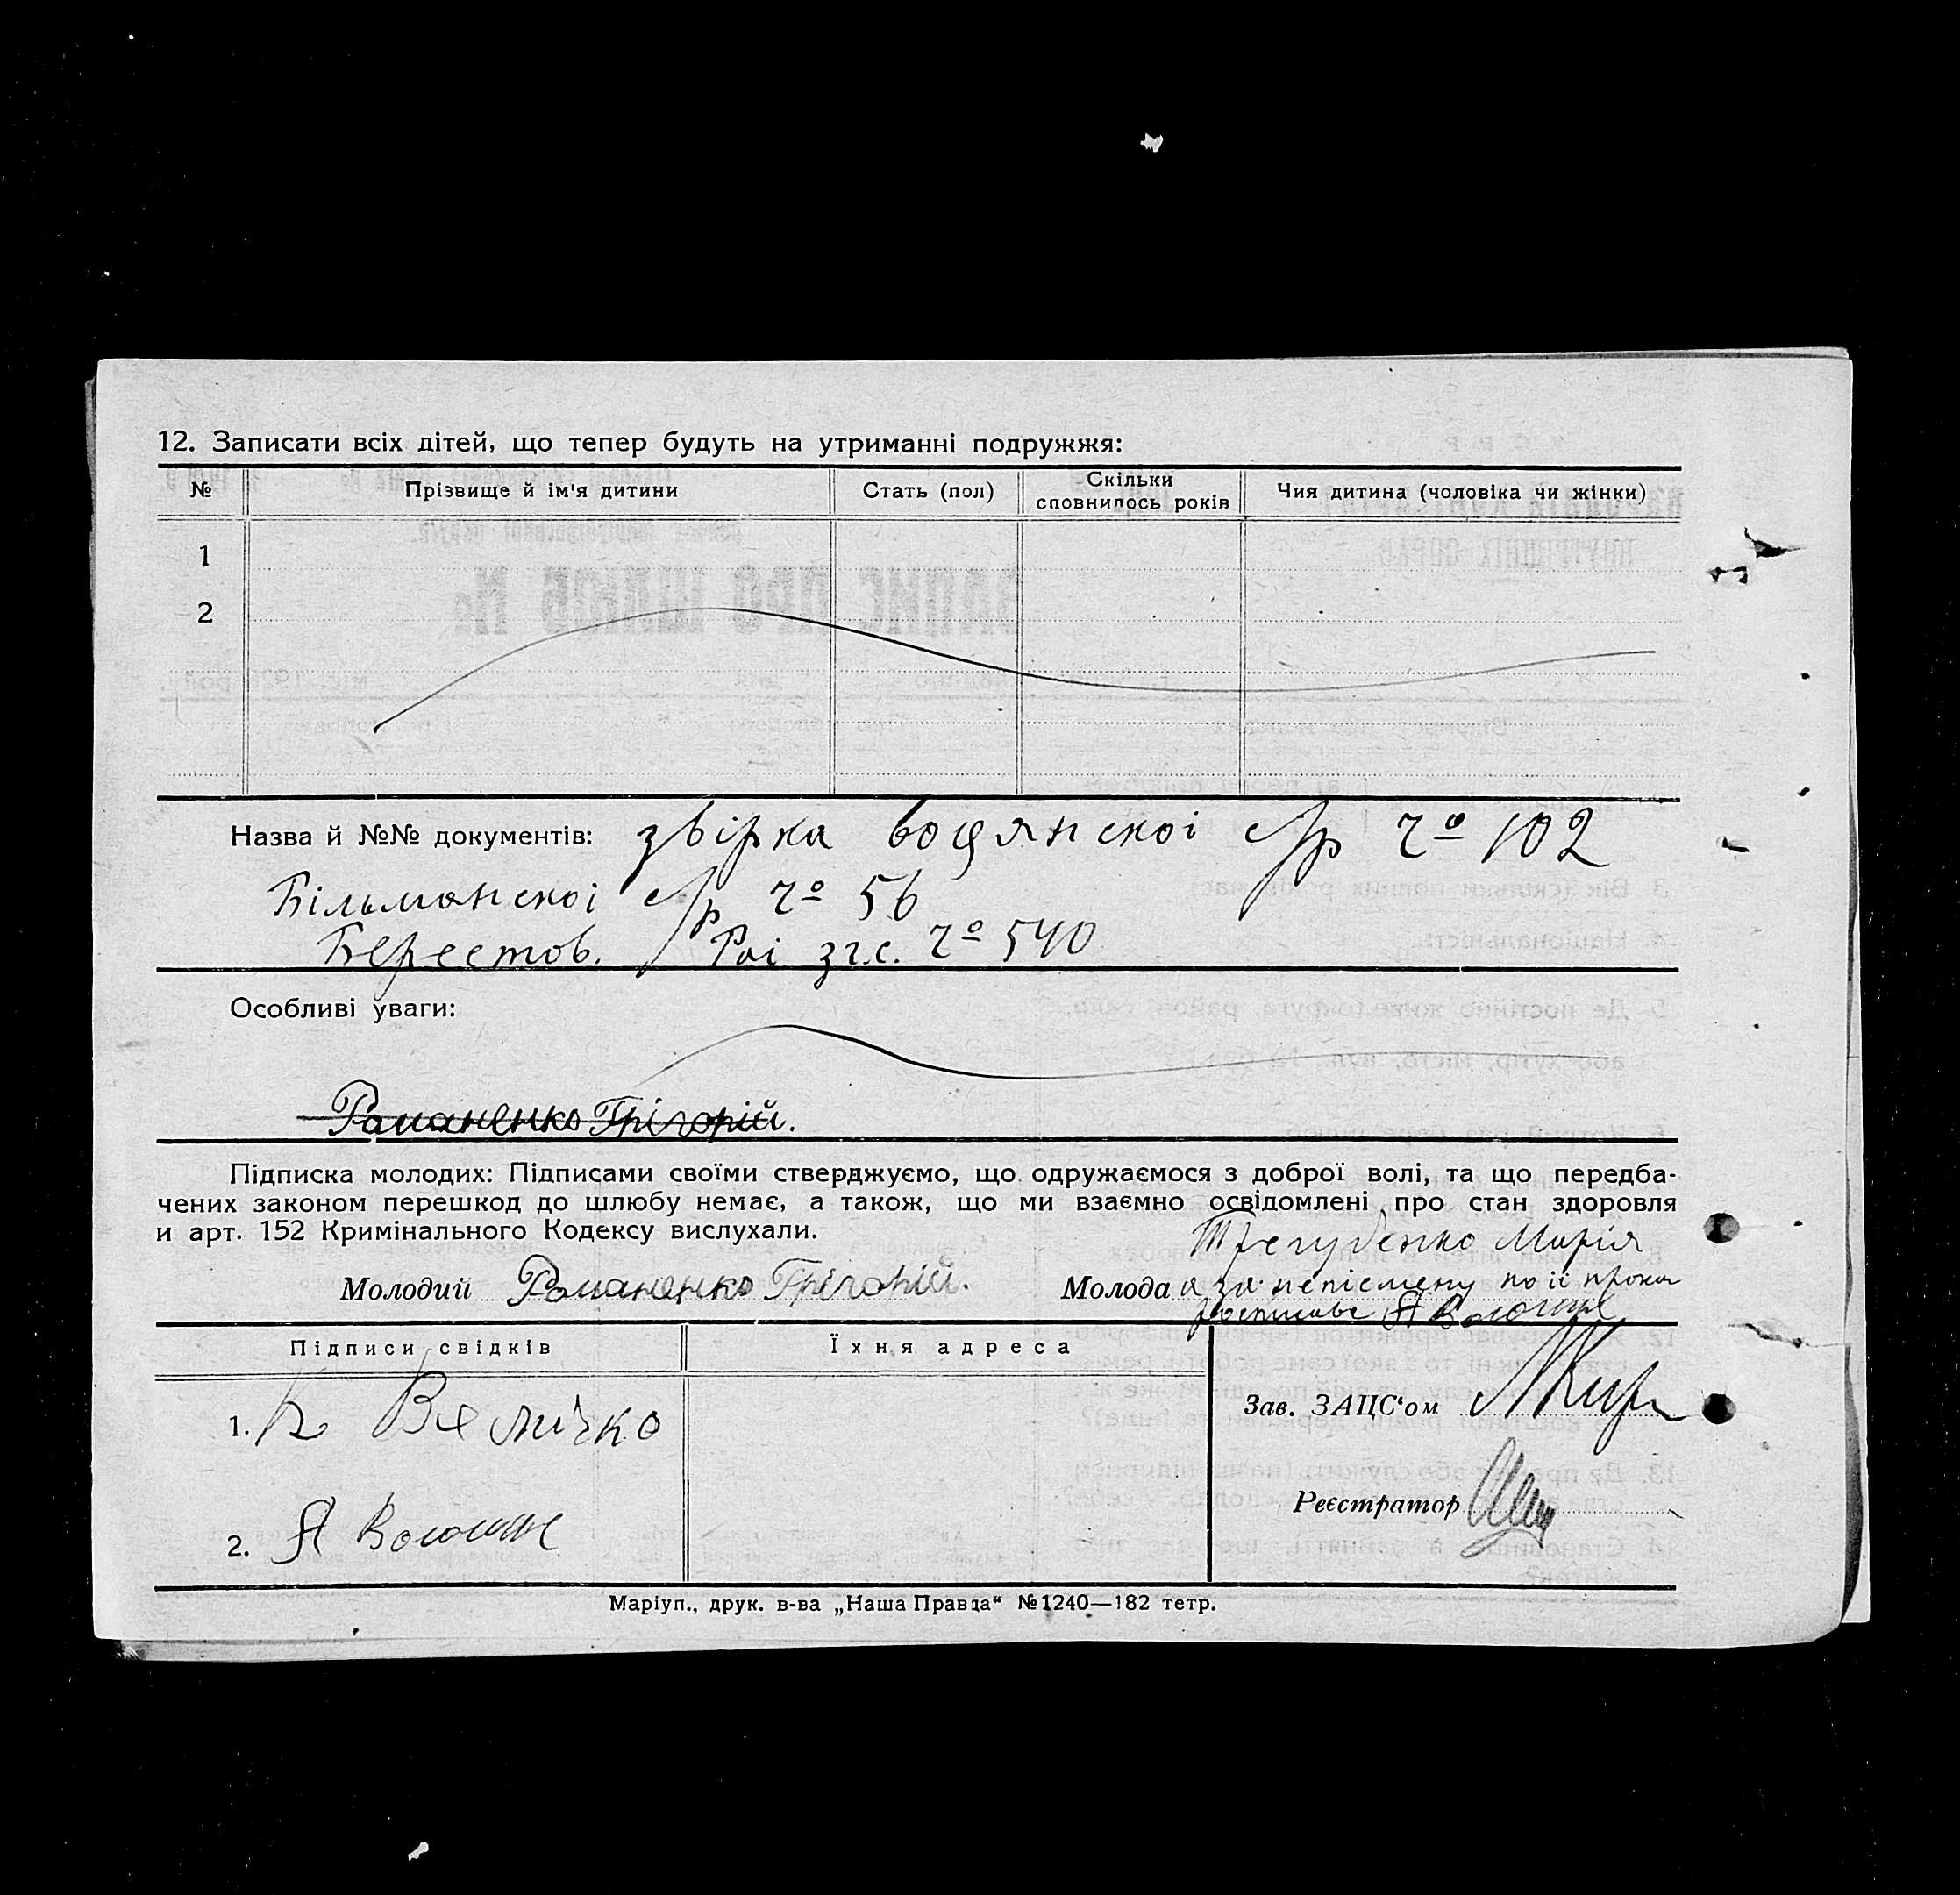 12. Записати всіх дітей, що тепер будуть на утриманні подружжя:
№ Прізвище й ім'я дитини Стать (пол) Скільки сповнилось років Чия дитина (чоловіка чи жінки)
1
2
Назва й №№ документів: звірка Воцянскоі с/р чº 102
Більманскоі с/р чº 56
Берестов. Раі згс. чº 540
Особливі уваги:
Романенко Грігорій.
Підписка молодих: Підписами своїми стверджуємо, що одружаємося з доброї волі, та що передба-
чених законом перешкод до шлюбу немає, а також, що ми взаємно освідомлені про стан здоровля
и арт. 152 Кримінального Кодексу вислухали.
Трегубенко Марія
Молодий Романенко Грігорій. Молода а за непісмену по іі
А Волошин
Підписи свідків Їхня адреса
Зав. ЗАЦС‘ом
1. Велічко
Реєстратор
2. А Волошин
Маріуп., друк. в-ва „Наша Правда“ №1240—182 тетр.